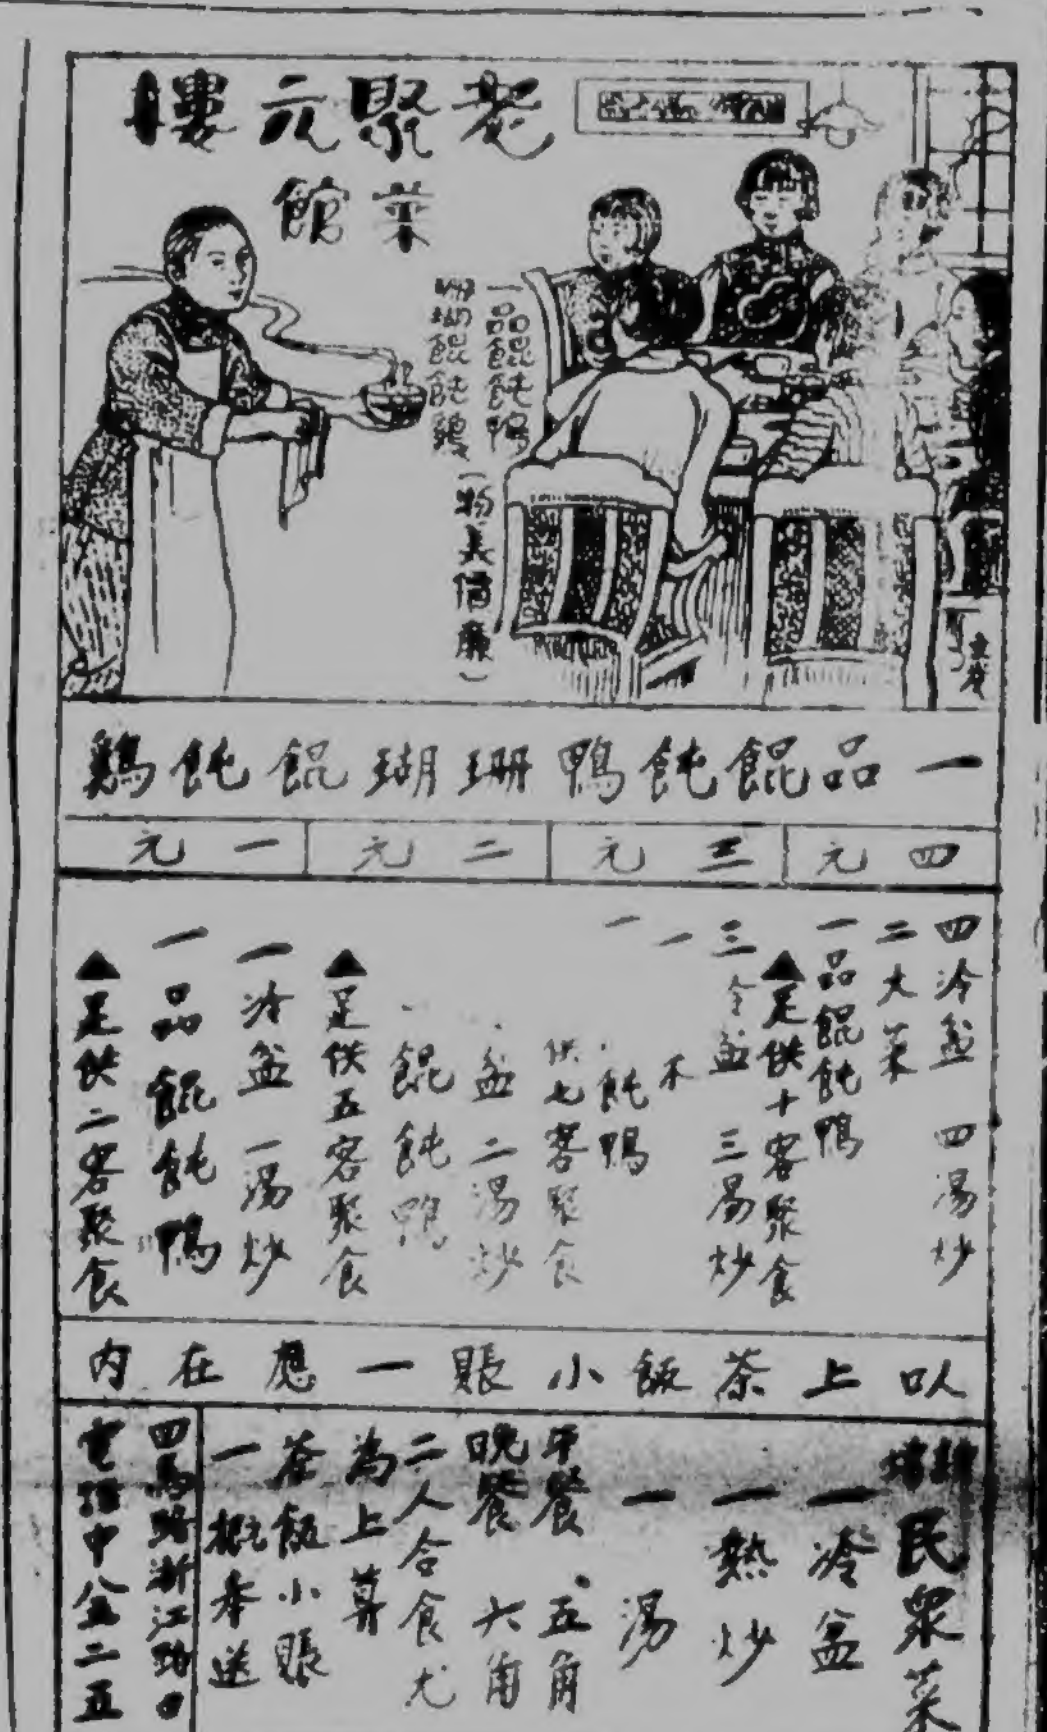 老聚元樓
菜館
一品餛飩鴨
珊瑚餛飩鷄
(物美價廉)
一品餛飩鴨珊瑚餛飩鷄
四元
三元
二元
一元
四冷盆 四湯炒
二大菜
一品餛飩鴨
▲足供十客聚食
三冷盆 三湯炒
一
一 飩鴨
供七客聚食
盆 二湯炒
餛飩鴨
▲足供五客聚食
一冷盆 一湯炒
一品餛飩鴨
▲足供二客聚食
以上茶飯小賬一應在內
民衆菜
一冷盆
一熱炒
一湯
午餐 五角
晚餐 六角
二人合食尤
為上算
茶飯小賬
一概奉送
四馬路浙江路口
電話中